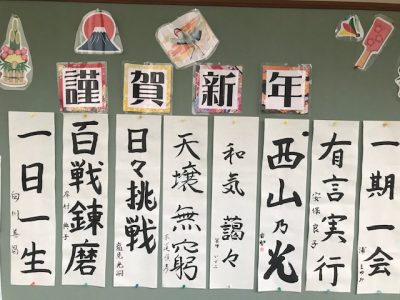 謹賀新年
一期一会
有言実行
安保良子
西山乃光
和気藹々
天壌無窮
日々挑戦
百戦錬磨
一日一生